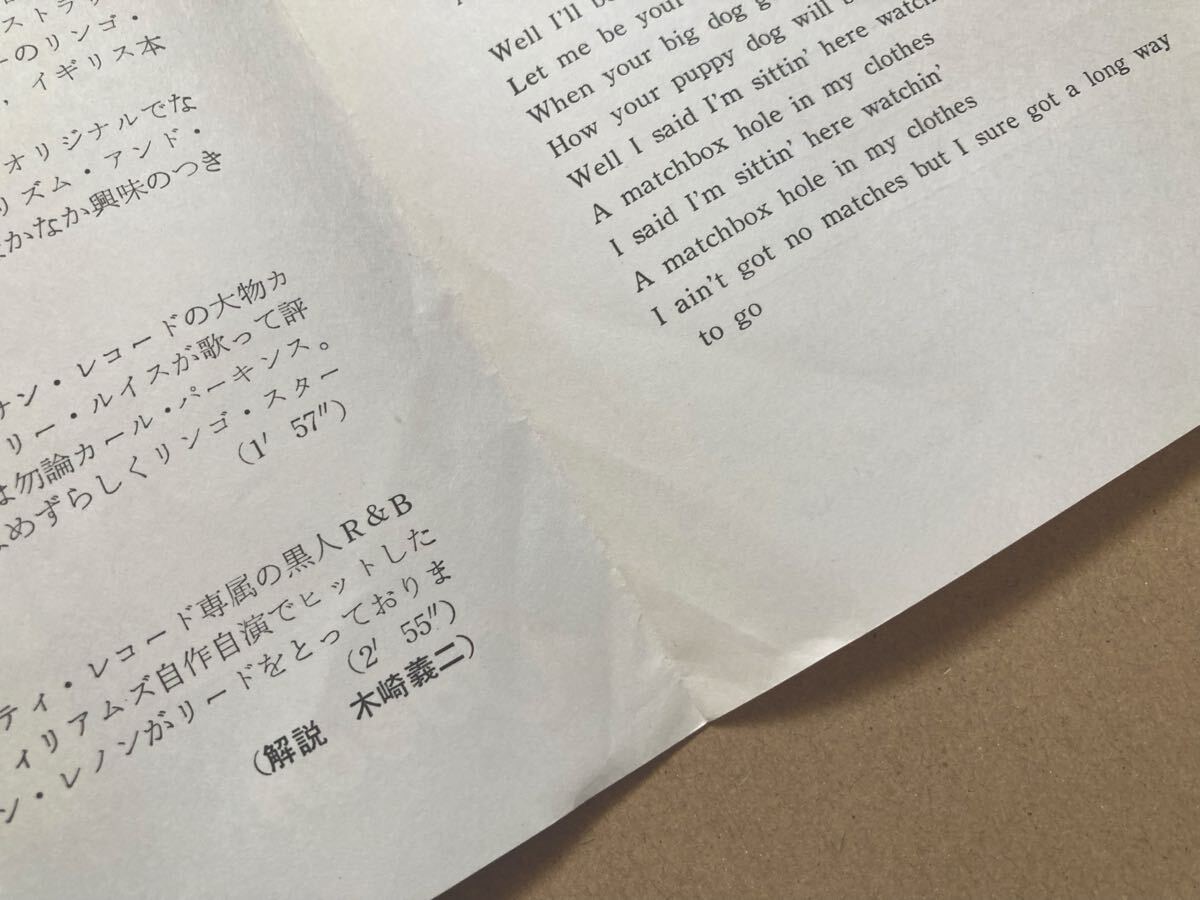 ストラッ
ーのリンゴ・
、イギリス本
オリジナルでな
リズム・アンド・
なかなか興味のつき
サン・レコードの大物カ
リー・ルイスが歌って評
は勿論カール・パーキンス。
めずらしくリンゴ・スター
(1′ 57″)
ティ・レコード専属の黒人R&B
ィリアムズ自作自演でヒットした
ン・レノンがリードをとっておりま
(2′ 55″)
(解説 木崎義二)
Well I'll
Let me be your
When your big dog
How your puppy dog will
Well I said I'm sittin' here
A matchbox hole in my clothes
I said I'm sittin' here watchin'
A matchbox hole in my clothes
I ain't got no matches but I sure got a long way
to go